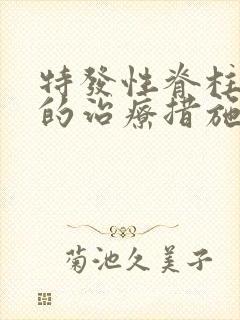 特發性脊柱
的治療措施
菊池久美子